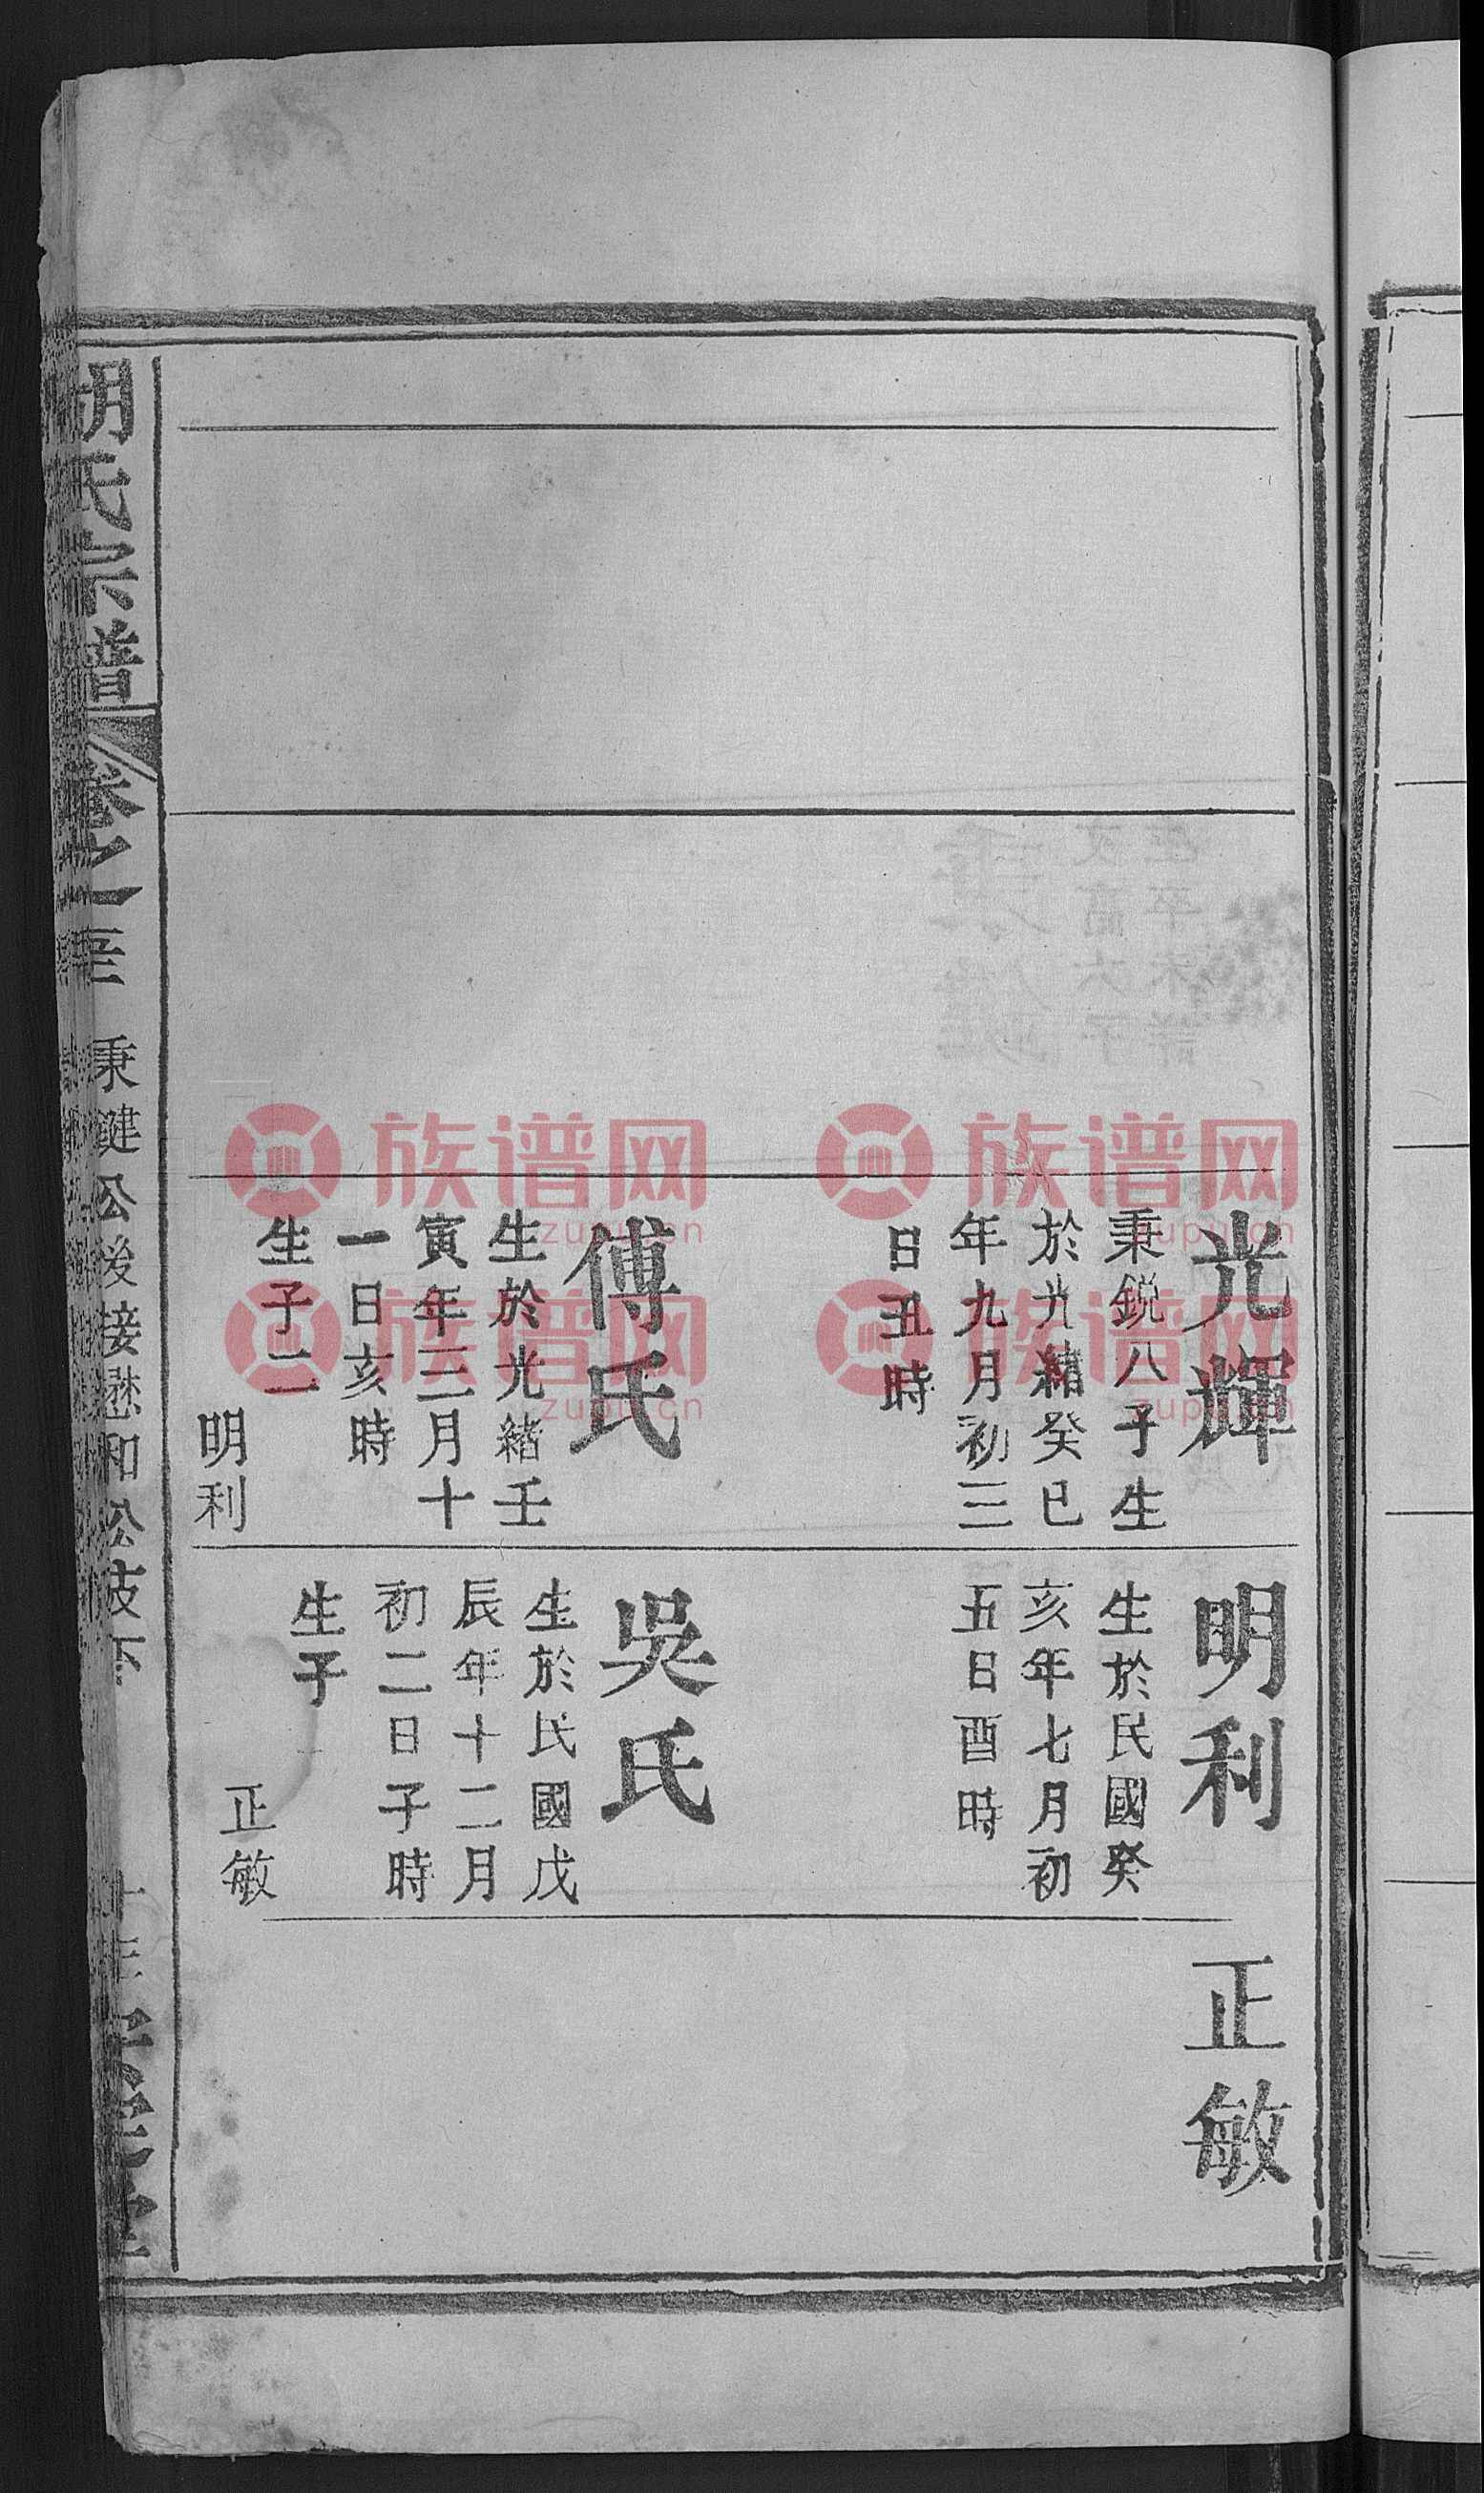 光輝
秉鋭八子生
於光緒癸巳
年九月初三
日丑時
傅氏
生於光緒壬
寅年三月十
一日亥時
生子二
明利
明利
生於民國癸
亥年七月初
五日酉時
吳氏
生於民國戊
辰年十二月
初二日子時
生子
正敏
正敏
胡氏宗譜
卷之一
秉鍵公後接懋和公枝下
族谱网
zupu.cn
族谱网
zupu.cn
族谱网
zupu.cn
族谱网
zupu.cn